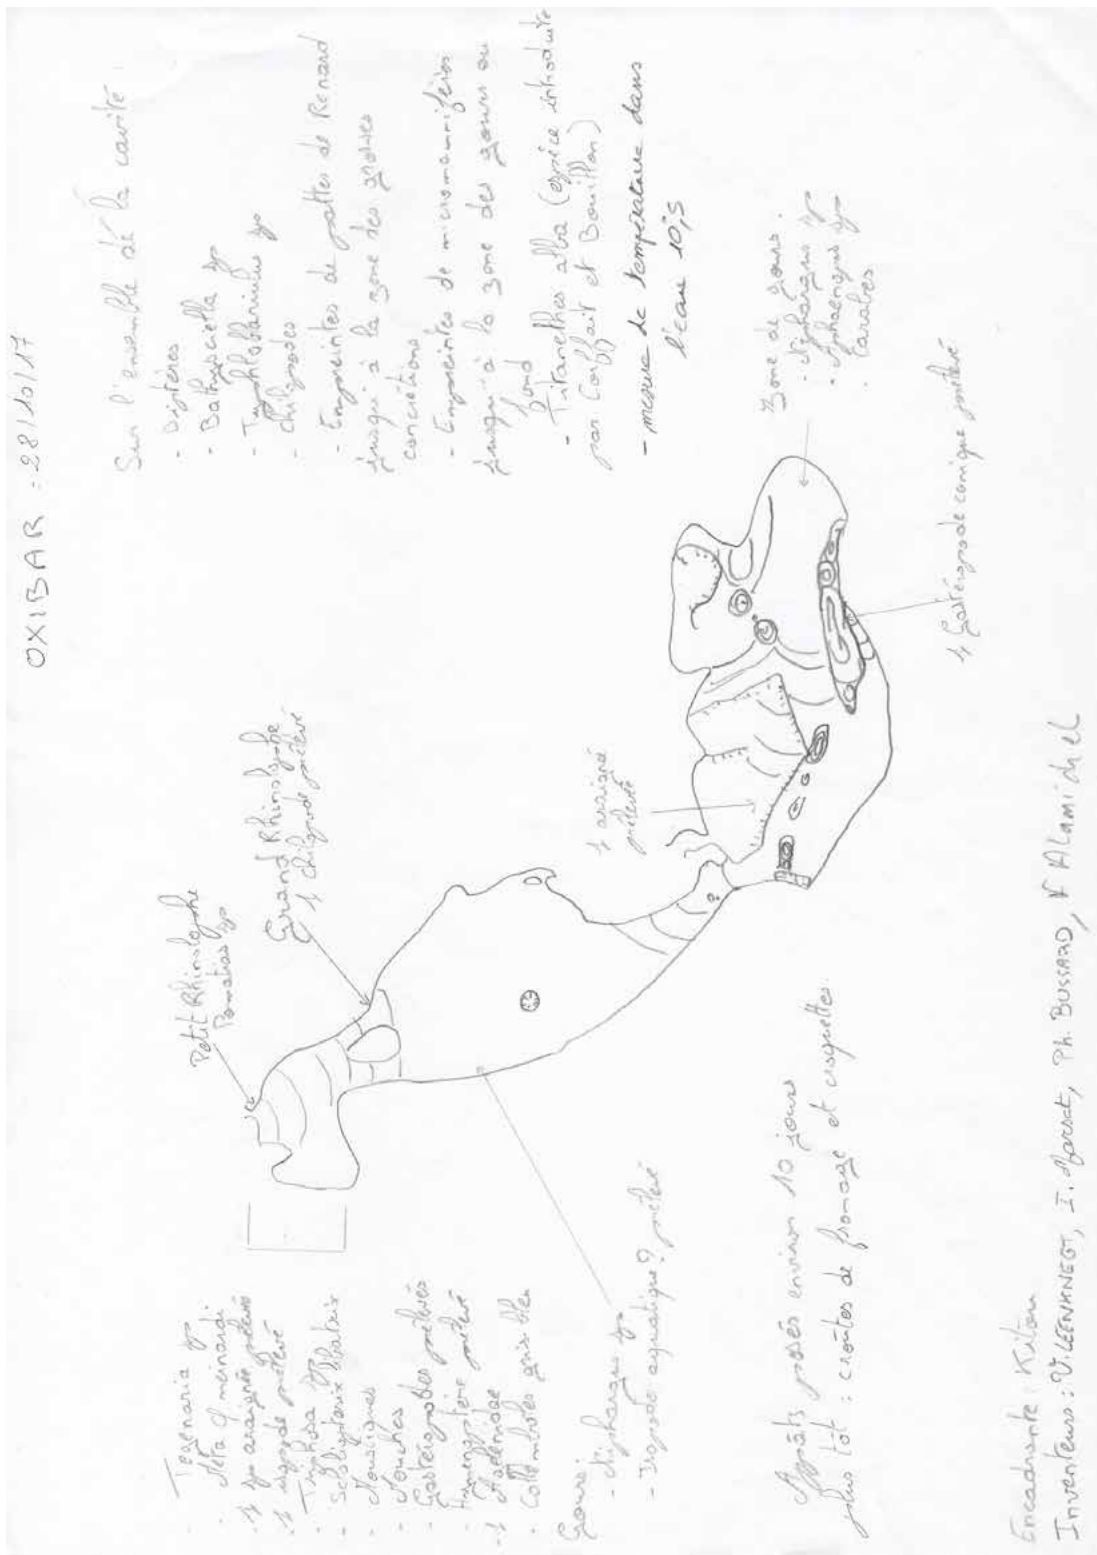 OXIBAR : 28/10/17
Sur l'ensemble de la cavité :
- Diptères
- Bathysciella sp
- Typhloblaniulus sp
- Chilopodes
- Empreintes de pattes de Renard
jusqu'à la zone des grosses
concrétions
- Empreintes de micromammifères
jusqu'à la zone des gours au
fond
- Titanethes alba (espèce introduite
par Coiffait et Bouillon)
- mesure de température dans
l'eau 10°,5
Petit Rhinolophe
Pomatias sp
Grand Rhinolophe
1 chilopode prélevé
1 araignée
prélevé
Zone de gours :
- Niphargus sp
- Aphaenops sp
- Carabes
1 Gastéropode conique prélevé
- Tegenaria sp
- Meta cf menardi
- 1 sp araignée prélevé
- 1 isopode prélevé
- Triphosa
- Scoliopterix libatrix
- Moustiques
- Mouches
- Gastéropodes prélevés
- Hymenoptère prélevé
- 1
- Collemboles gris bleu
Gours :
- Niphargus sp
- Isopode aquatique? prélevé
Appâts posés environ 10 jours
plus tôt : croûtes de fromage et croquettes.
Encadrante : Kiton
Inventeurs : V. LEENKNEGT, I. Marsat, Ph. BUSSARD, Alamichel